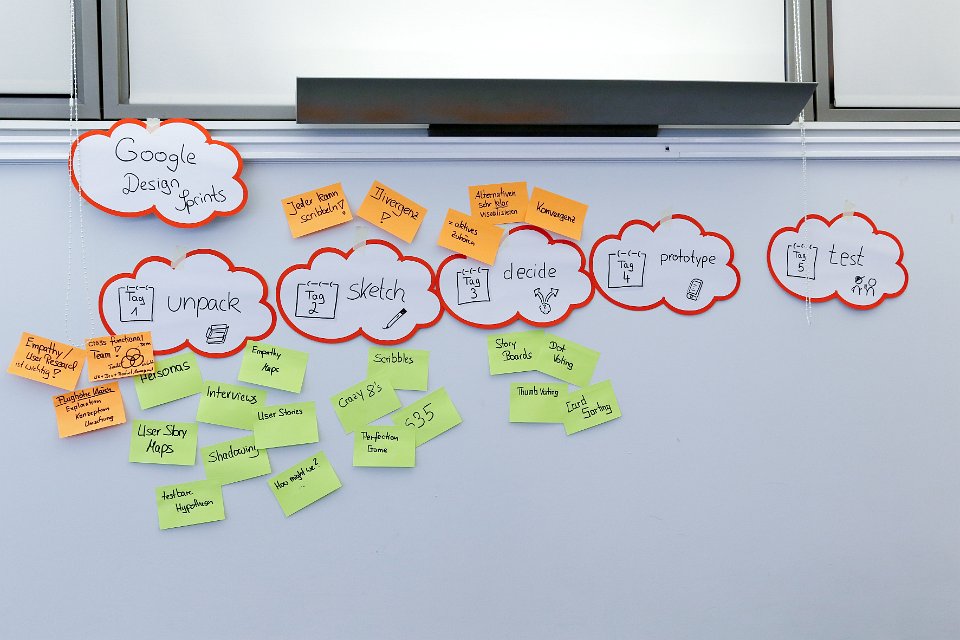 Google
Design
Sprints
Jeder kann
scribbeln!
Divergenz
!
Alternativen
sehr klar
visualisieren
Konvergenz
= aktives
Zuhören
Tag
1
unpack
Tag
2
sketch
Tag
3
decide
Tag
4
prototype
Tag
5
test
Empathy/
User Research
ist wichtig!
Cross Functional
Team!
Flughöhe klären
Exploration
Konzeption
Umsetzung
Personas
Empathy
Maps
Interviews
User Stories
User Story
Maps
Shadowing
How might we?
...
testbare
Hypothesen
Scribbles
Crazy 8's
635
Perfection
Game
Story
Boards
Dot
Voting
Thumb Voting
Card
Sorting